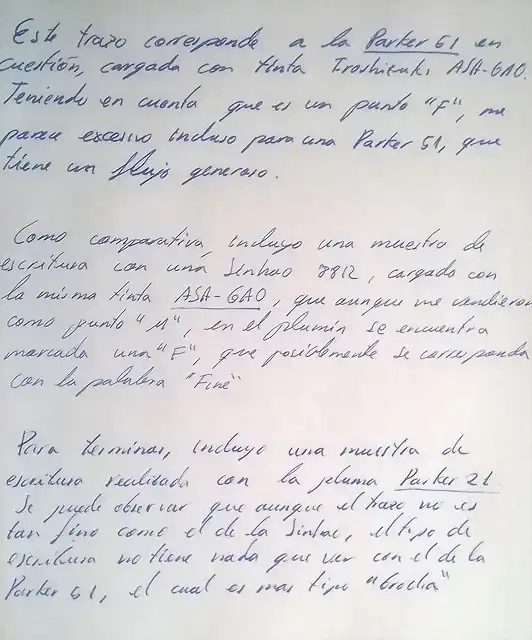 Este trazo corresponde a la Parker 51 en
cuestión, cargada con tinta Iroshizuki ASA-GAO.
Teniendo en cuenta que es un punto "F", me
parece excesivo incluso para una Parker 51, que
tiene un flujo generoso.
Como comparativa, incluyo una muestra de
escritura con una Jinhao 8812, cargado con
la misma tinta ASA-GAO, que aunque me vendieron
como punto "M", en el plumin se encuentra
marcada una "F", que posiblemente se corresponda
con la palabra "Fine"
Para terminar, incluyo una muestra de
escritura realizada con la pluma Parker 21.
Se puede observar que aunque el trazo no es
tan fino como el de la Jinhao, el tipo de
escritura no tiene nada que ver con el de la
Parker 51, el cual es mas tipo "brocha"